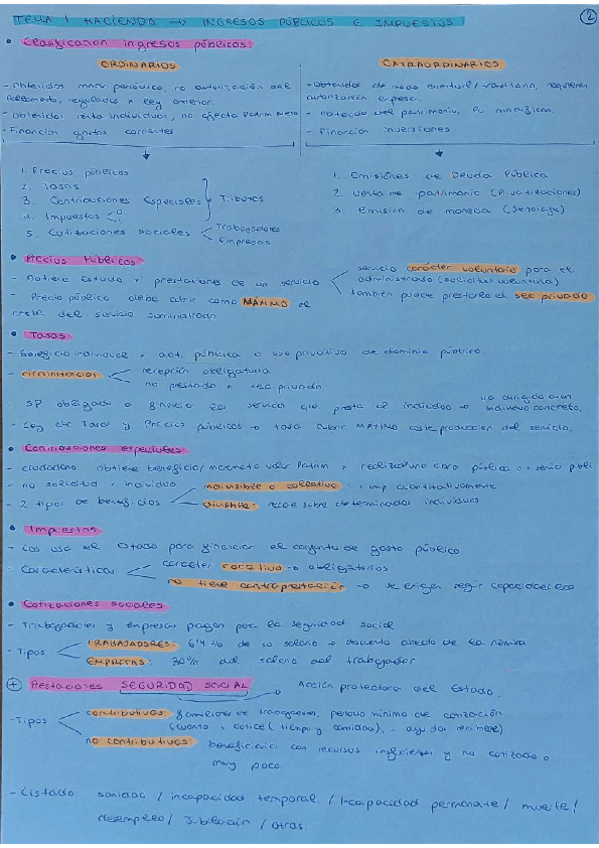 TEMA 1 HACIENDA → INGRESOS PÚBLICOS E IMPUESTOS
2
• Clasificación ingresos públicos:
ORDINARIOS
EXTRAORDINARIOS
- Obtenidos manera periódica, no autorización del
parlamento, regulados x ley anterior.
- Obtenidos renta individuos, no efecto Patrim Neto
- Financian gastos corrientes
- Obtenidos de modo eventual / , requieren
autorización expresa.
- obtenido del patrimonio, lo modifican.
- Financian inversiones
1. Precios públicos
2. Tasas
3. Contribuciones Especiales
4. Impuestos
Tributos
5. Cotizaciones sociales < Trabajadores
Empresas
1. Emisiones de Deuda Pública
2. Venta de patrimonio (Privatizaciones)
3. Emisión de moneda (Señoreaje)
• Precios Públicos
- Obtiene Estado x prestaciones de un servicio
servicio carácter voluntario para el
administrado (solicitud voluntaria)
también puede prestarlo el sec privado
- Precio público debe cubrir como MÁXIMO el
coste del servicio suministrado.
• Tasas
- Beneficio individual x act. pública o uso privativo de dominio público
- características < recepción obligatoria
no prestado x sec privado
SP obligado a financiar los servicios que presta al individuo → individuo concreto.
no dirigido a un
- Ley de Tasas y Precios públicos → tasa cubrir MÁXIMO coste producción del servicio.
• Contribuciones especiales
- ciudadano obtiene beneficio/incremento valor Patrim x realización obra pública o servicio públi
- no solicitud x individuo
- 2 tipos de beneficios
indivisible o colectivo: imp cuantitativamente
divisible: recae sobre determinados individuos
• Impuestos
- Los usa el Estado para financiar el conjunto de gasto público
- Características < carácter coactivo → obligatorios
no tiene contraprestación → se exigen según capacidad eco
• Cotizaciones sociales
- Trabajadores y empresas pagan por la seguridad social
- Tipos < TRABAJADORES: 6'4% de su salario → descuento directo de la nómina
EMPRESAS: 30% del salario del trabajador
+ Prestaciones SEGURIDAD SOCIAL → Acción protectora del Estado.
- Tipos
contributivos: familiares de trabajadores, periodo mínimo de cotización
(cuanto + cotice (tiempo y cantidad), + ayudas recibirá)
no contributivos: beneficiarios con recursos insuficientes y no cotizado o
muy poco
- Listado: sanidad / incapacidad temporal / Incapacidad permanente / muerte /
desempleo / Jubilación / otras.